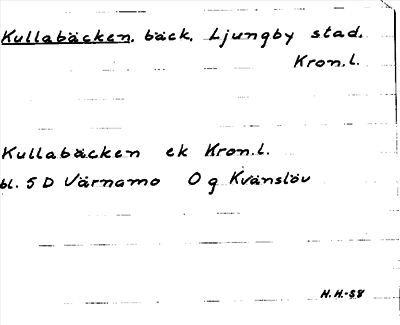 Kullabäcken, bäck, Ljungby stad,
Kron.l.
Kullabäcken ek Kron.l.
bl. 5 D Värnamo 0 g Kvänslöv
H.H.-58